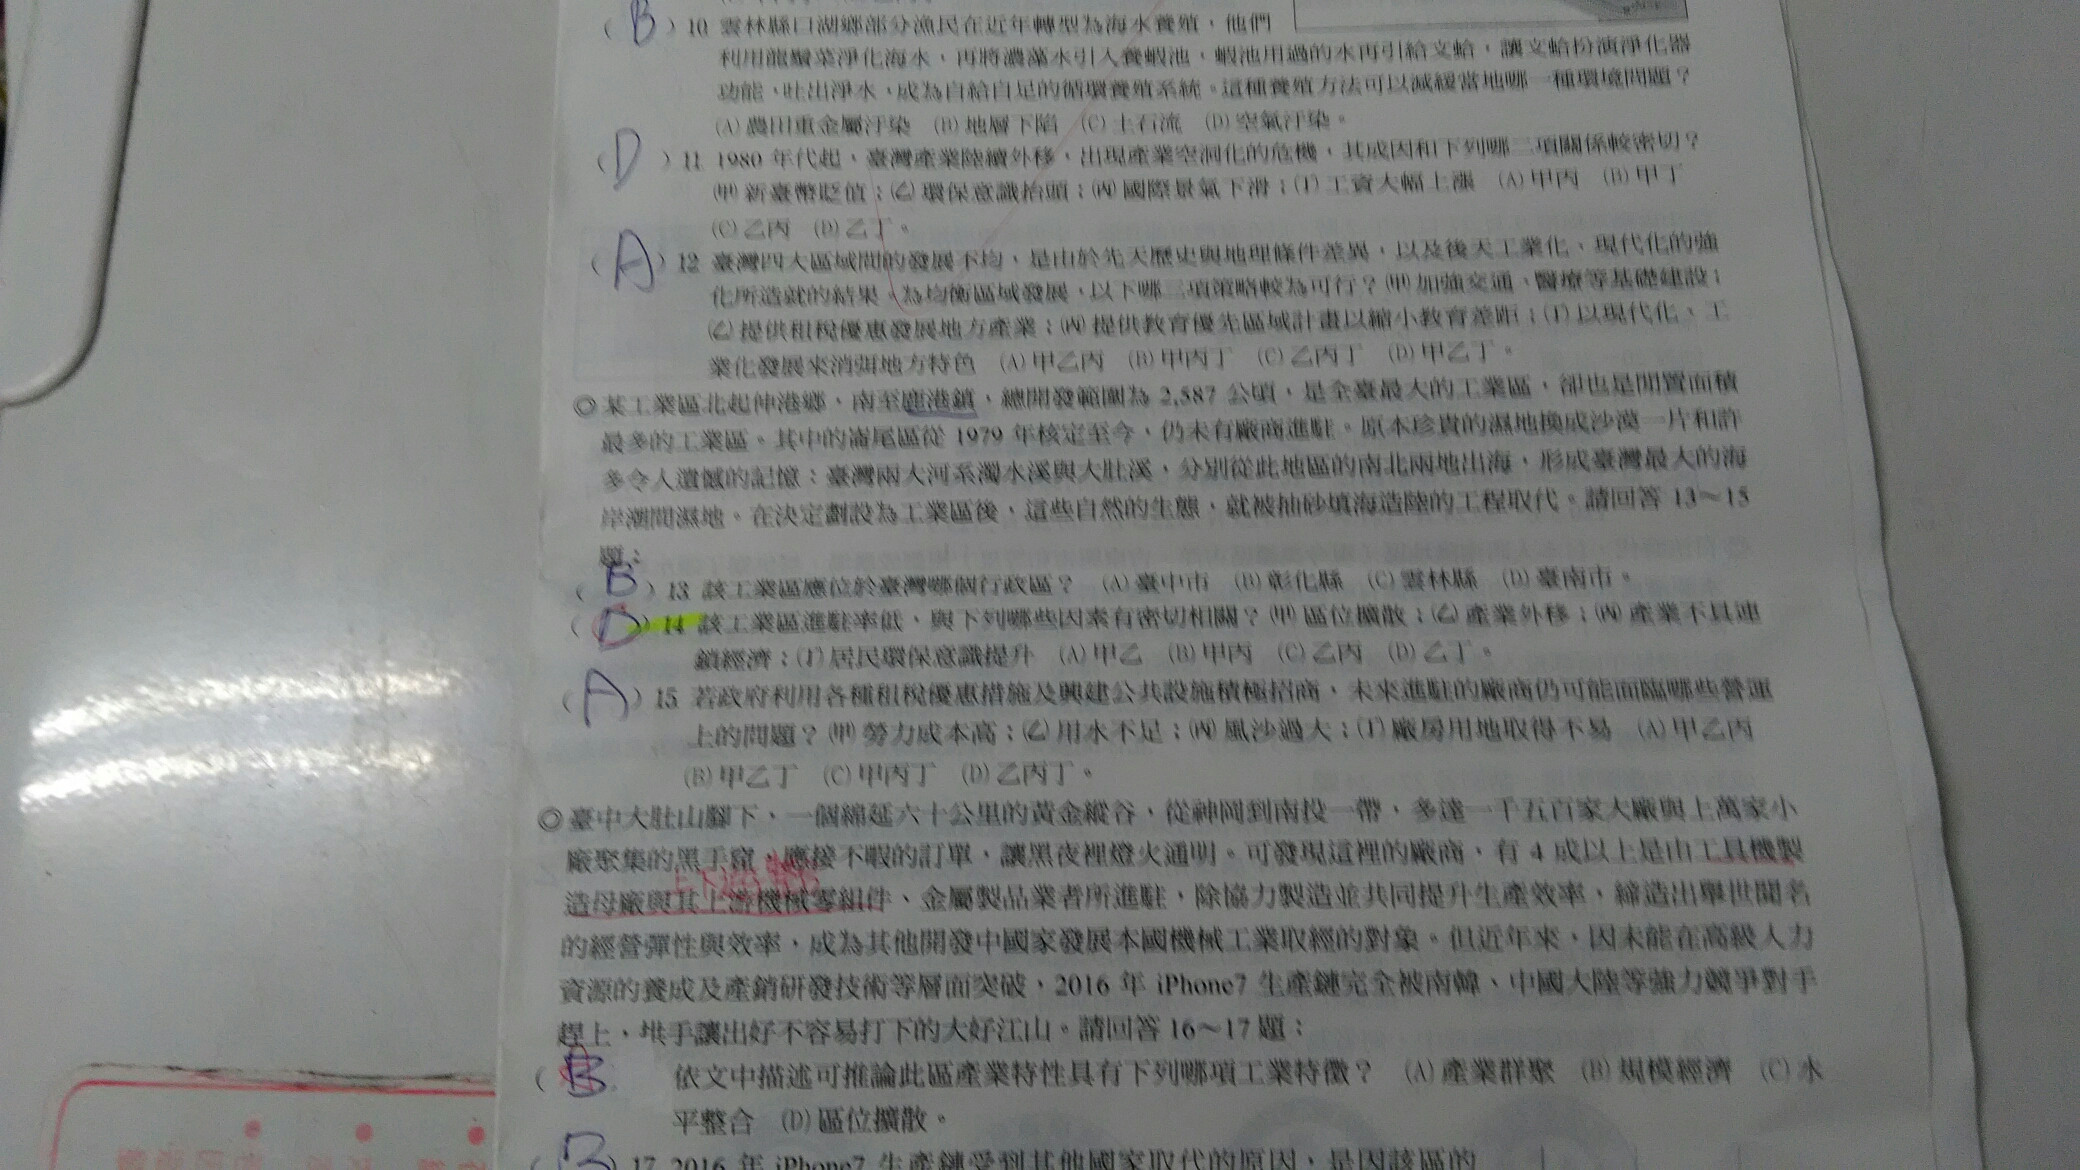 (B) 10 雲林縣口湖鄉部分漁民在近年轉型為海水養殖，他們
利用龍鬚菜淨化海水，再將濃藻水引入養蝦池，蝦池用過的水再引給文蛤，讓文蛤扮演淨化器
功能，吐出淨水，成為自給自足的循環養殖系統。這種養殖方法可以減緩當地哪一種環境問題？
(A) 農田重金屬汙染 (B) 地層下陷 (C) 土石流 (D) 空氣汙染。
(D) 11 1980 年代起，臺灣產業陸續外移，出現產業空洞化的危機，其成因和下列哪二項關係較密切？
(甲) 新臺幣貶值；(乙) 環保意識抬頭；(丙) 國際景氣下滑；(丁) 工資大幅上漲 (A) 甲丙 (B) 甲丁
(C) 乙丙 (D) 乙丁。
(A) 12 臺灣四大區域間的發展不均，是由於先天歷史與地理條件差異，以及後天工業化、現代化的強
化所造就的結果。為均衡區域發展，以下哪三項策略較為可行？(甲) 加強交通、醫療等基礎建設；
(乙) 提供租稅優惠發展地方產業；(丙) 提供教育優先區域計畫以縮小教育差距；(丁) 以現代化、工
業化發展來消弭地方特色 (A) 甲乙丙 (B) 甲丙丁 (C) 乙丙丁 (D) 甲乙丁。
◎某工業區北起伸港鄉，南至鹿港鎮，總開發範圍為 2,587 公頃，是全臺最大的工業區，卻也是閒置面積
最多的工業區。其中的崙尾區從 1979 年核定至今，仍未有廠商進駐。原本珍貴的濕地換成沙漠一片和許
多令人遺憾的記憶：臺灣兩大河系濁水溪與大肚溪，分別從此地區的南北兩地出海，形成臺灣最大的海
岸潮間濕地。在決定劃設為工業區後，這些自然的生態，就被抽砂填海造陸的工程取代。請回答 13～15
題：
(B) 13 該工業區應位於臺灣哪個行政區？ (A) 臺中市 (B) 彰化縣 (C) 雲林縣 (D) 臺南市。
(D) 14 該工業區進駐率低，與下列哪些因素有密切相關？(甲) 區位擴散；(乙) 產業外移；(丙) 產業不具連
鎖經濟；(丁) 居民環保意識提升 (A) 甲乙 (B) 甲丙 (C) 乙丙 (D) 乙丁。
(A) 15 若政府利用各種租稅優惠措施及興建公共設施積極招商，未來進駐的廠商仍可能面臨哪些營運
上的問題？(甲) 勞力成本高；(乙) 用水不足；(丙) 風沙過大；(丁) 廠房用地取得不易 (A) 甲乙丙
(B) 甲乙丁 (C) 甲丙丁 (D) 乙丙丁。
◎臺中大肚山腳下，一個綿延六十公里的黃金縱谷，從神岡到南投一帶，多達一千五百家大廠與上萬家小
廠聚集的黑手窟，應接不暇的訂單，讓黑夜裡燈火通明。可發現這裡的廠商，有 4 成以上是由工具機製
造母廠與其上游機械零組件、金屬製品業者所進駐，除協力製造並共同提升生產效率，締造出舉世聞名
的經營彈性與效率，成為其他開發中國家發展本國機械工業取經的對象。但近年來，因未能在高級人力
資源的養成及產銷研發技術等層面突破，2016 年 iPhone7 生產鏈完全被南韓、中國大陸等強力競爭對手
趕上，拱手讓出好不容易打下的大好江山。請回答 16～17 題：
(B 依文中描述可推論此區產業特性具有下列哪項工業特徵？ (A) 產業群聚 (B) 規模經濟 (C) 水
平整合 (D) 區位擴散。
(B) 17 2016 年 iPhone7 生產鏈受到其他國家取代的原因，是因該區的